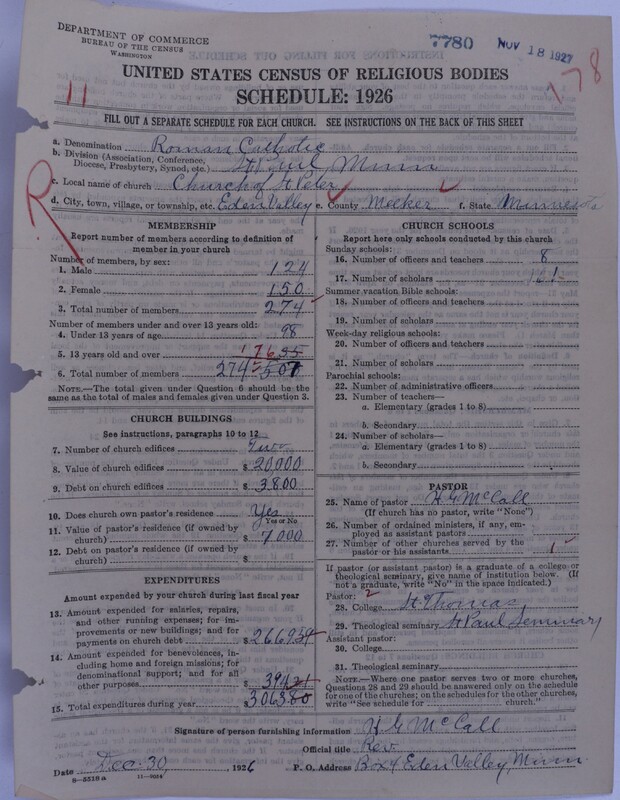 DEPARTMENT OF COMMERCE
BUREAU OF THE CENSUS
WASHINGTON
7780 NOV 18 1927
178
11
UNITED STATES CENSUS OF RELIGIOUS BODIES
SCHEDULE: 1926
FILL OUT A SEPARATE SCHEDULE FOR EACH CHURCH. SEE INSTRUCTIONS ON THE BACK OF THIS SHEET
a. Denomination Roman Catholic
b. Division (Association, Conference, Diocese, Presbytery, Synod, etc.) St Paul Minn
c. Local name of church Church of St Peter
d. City, town, village, or township, etc. Eden Valley e. County Meeker f. State Minnesota
R
MEMBERSHIP
Report number of members according to definition of member in your church
Number of members, by sex:
1. Male 124
2. Female 150
3. Total number of members 274
Number of members under and over 13 years old:
4. Under 13 years of age 98
5. 13 years old and over 176
6. Total number of members 274
NOTE.—The total given under Question 6 should be the same as the total of males and females given under Question 3.
CHURCH BUILDINGS
See instructions, paragraphs 10 to 12
7. Number of church edifices
8. Value of church edifices $ 20,000
9. Debt on church edifices $ 3800
10. Does church own pastor's residence Yes
Yes or No
11. Value of pastor's residence (if owned by church) $ 7,000
12. Debt on pastor's residence (if owned by church) $
EXPENDITURES
Amount expended by your church during last fiscal year
13. Amount expended for salaries, repairs, and other running expenses; for improvements or new buildings; and for payments on church debt $ 266959
14. Amount expended for benevolences, including home and foreign missions; for denominational support; and for all other purposes $ 39421
15. Total expenditures during year $ 306380
CHURCH SCHOOLS
Report here only schools conducted by this church
Sunday schools:
16. Number of officers and teachers 8
17. Number of scholars
Summer vacation Bible schools:
18. Number of officers and teachers
19. Number of scholars
Week-day religious schools:
20. Number of officers and teachers
21. Number of scholars
Parochial schools:
22. Number of administrative officers
23. Number of teachers—
a. Elementary (grades 1 to 8)
b. Secondary
24. Number of scholars—
a. Elementary (grades 1 to 8)
b. Secondary
PASTOR
25. Name of pastor H G McCall
(If church has no pastor, write "None")
26. Number of ordained ministers, if any, employed as assistant pastors
27. Number of other churches served by the pastor or his assistants 1
If pastor (or assistant pastor) is a graduate of a college or theological seminary, give name of institution below. (If not a graduate, write "No" in the space indicated.)
Pastor:
28. College St Thomas
29. Theological seminary St Paul Seminary
Assistant pastor:
30. College
31. Theological seminary
NOTE.—Where one pastor serves two or more churches, Questions 28 and 29 should be answered only on the schedule for one of the churches; on the schedules for the other churches, write "See schedule for church."
Signature of person furnishing information H G McCall
Official title Rev.
Date Dec. 30, 1926 P. O. Address Box 4 Eden Valley, Minn.
8—5518 a 11—9024